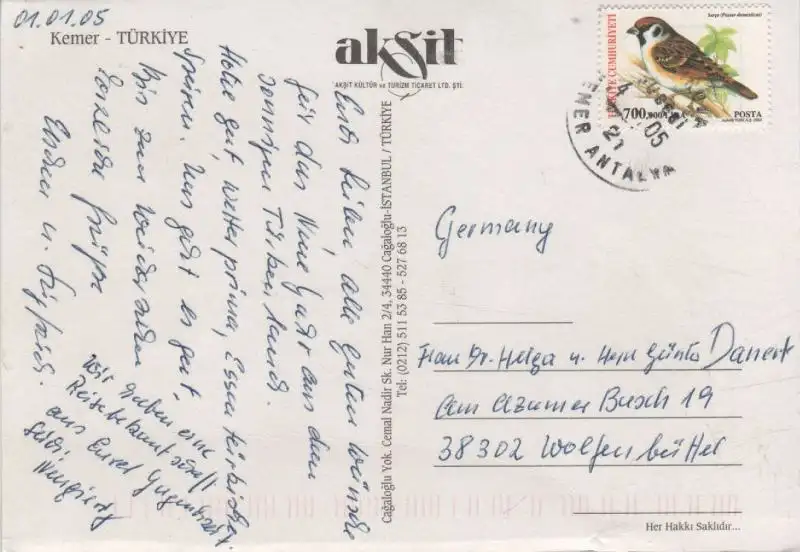 01.01.05
Kemer - TÜRKİYE
akşit
AKŞİT KÜLTÜR ve TURİZM TİCARET LTD. ŞTİ.
Serçe (Passer domesticus)
TÜRKİYE CUMHURİYETİ
700.000 LİRA
POSTA
KEMER ANTALYA
05
alle guten Wünsche
für das Neue Jahr aus dem
sonnigen Türkenland.
Hotel gut, Wetter prima, Essen
Uns geht es gut,
Bis zum Wiedersehen
Grüße
u.
Wir haben eine
Reisebekanntschaft
aus Eurer
Cağaloğlu Yok. Cemal Nadir Sk. Nur Han 2/4, 34440 Cağaloğlu-İSTANBUL / TÜRKİYE
Tel: (0212) 511 53 85 - 527 68 13
Germany
Frau Dr. Helga u. Herr Günter Danert
Am Atzumer Busch 19
38302 Wolfenbüttel
Her Hakkı Saklıdır...